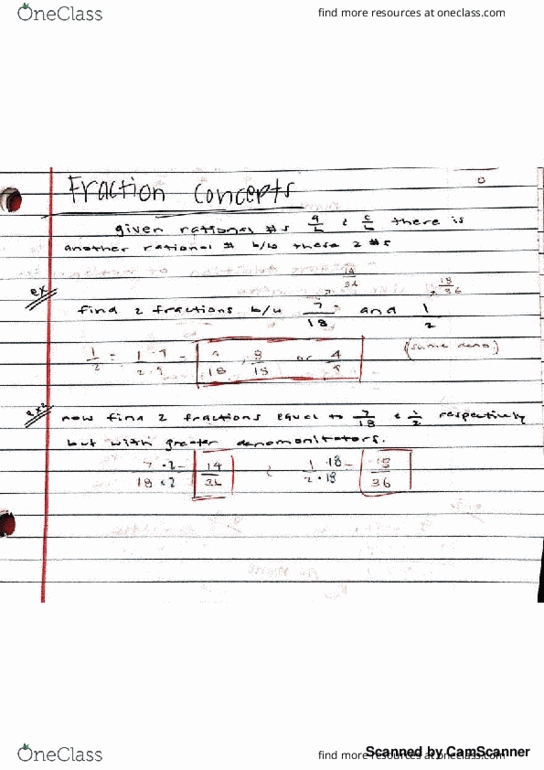 OneClass
find more resources at oneclass.com
Fraction Concepts
given rational #s a/b & c/b there is
another rational # b/w these 2 #s
14/36 18/36
ex
find 2 fractions b/w 7/18 and 1/2
1/2 = 1·9/2·9 = 9/18, 8/18 or 4/9 (same deno.)
ex2
now find 2 fractions equal to 7/18 & 1/2 respectively
but with greater denomonitators.
7·2/18·2 = 14/36 & 1·18/2·18 = 18/36
OneClass
find more resources at oneclass.com
Scanned by CamScanner